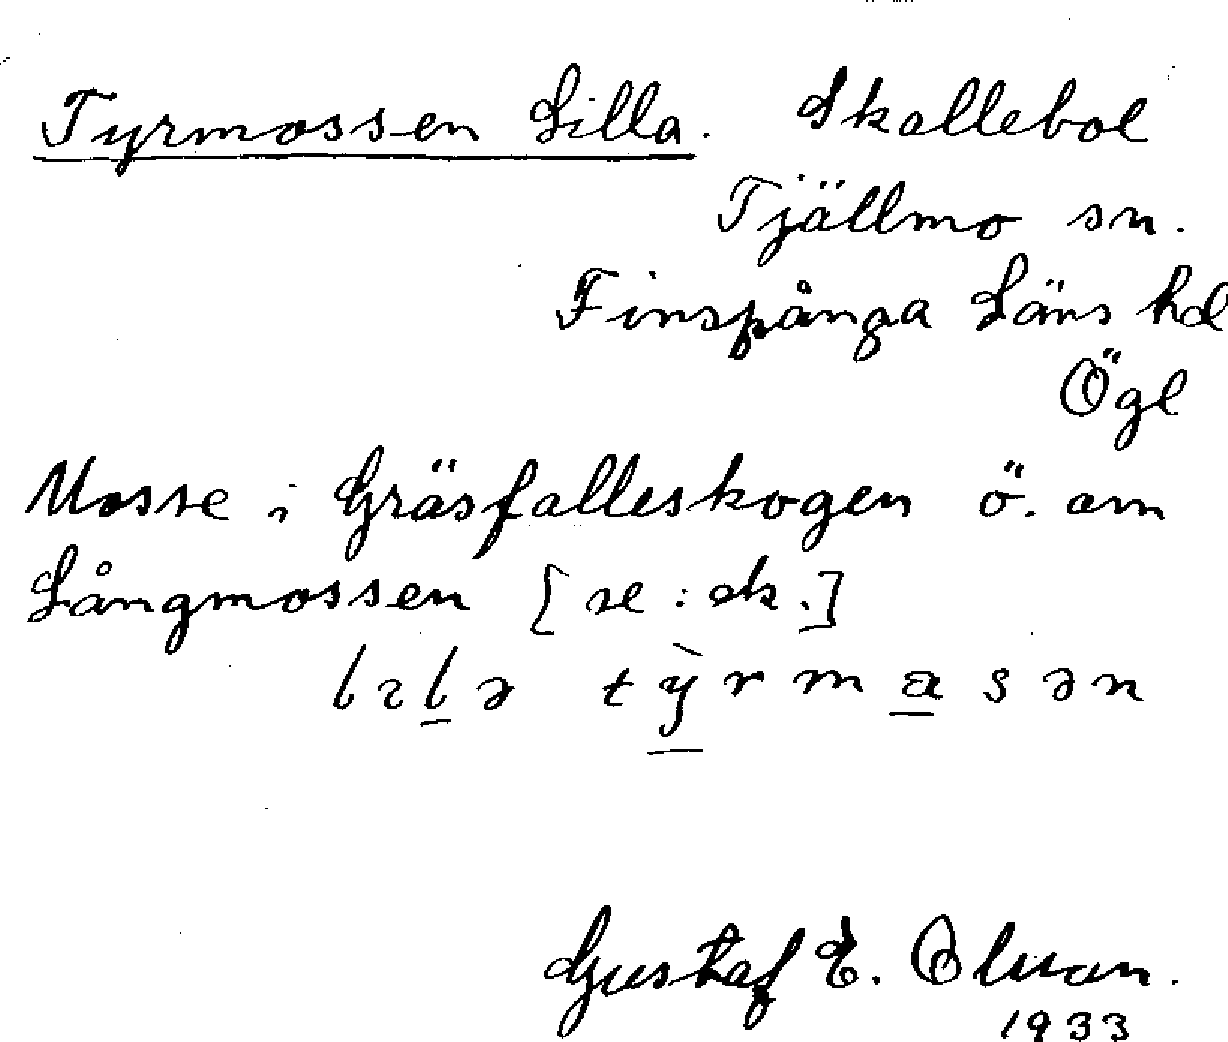 Tyrmossen Lilla. Skallebol
Tjällmo sn.
Finspånga Läns hd
Ögl
Mosse i Gräsfalleskogen ö. om
Långmossen [se: ek.]
lɩlə tỳrmasən
Gustaf E. Olsson.
1933